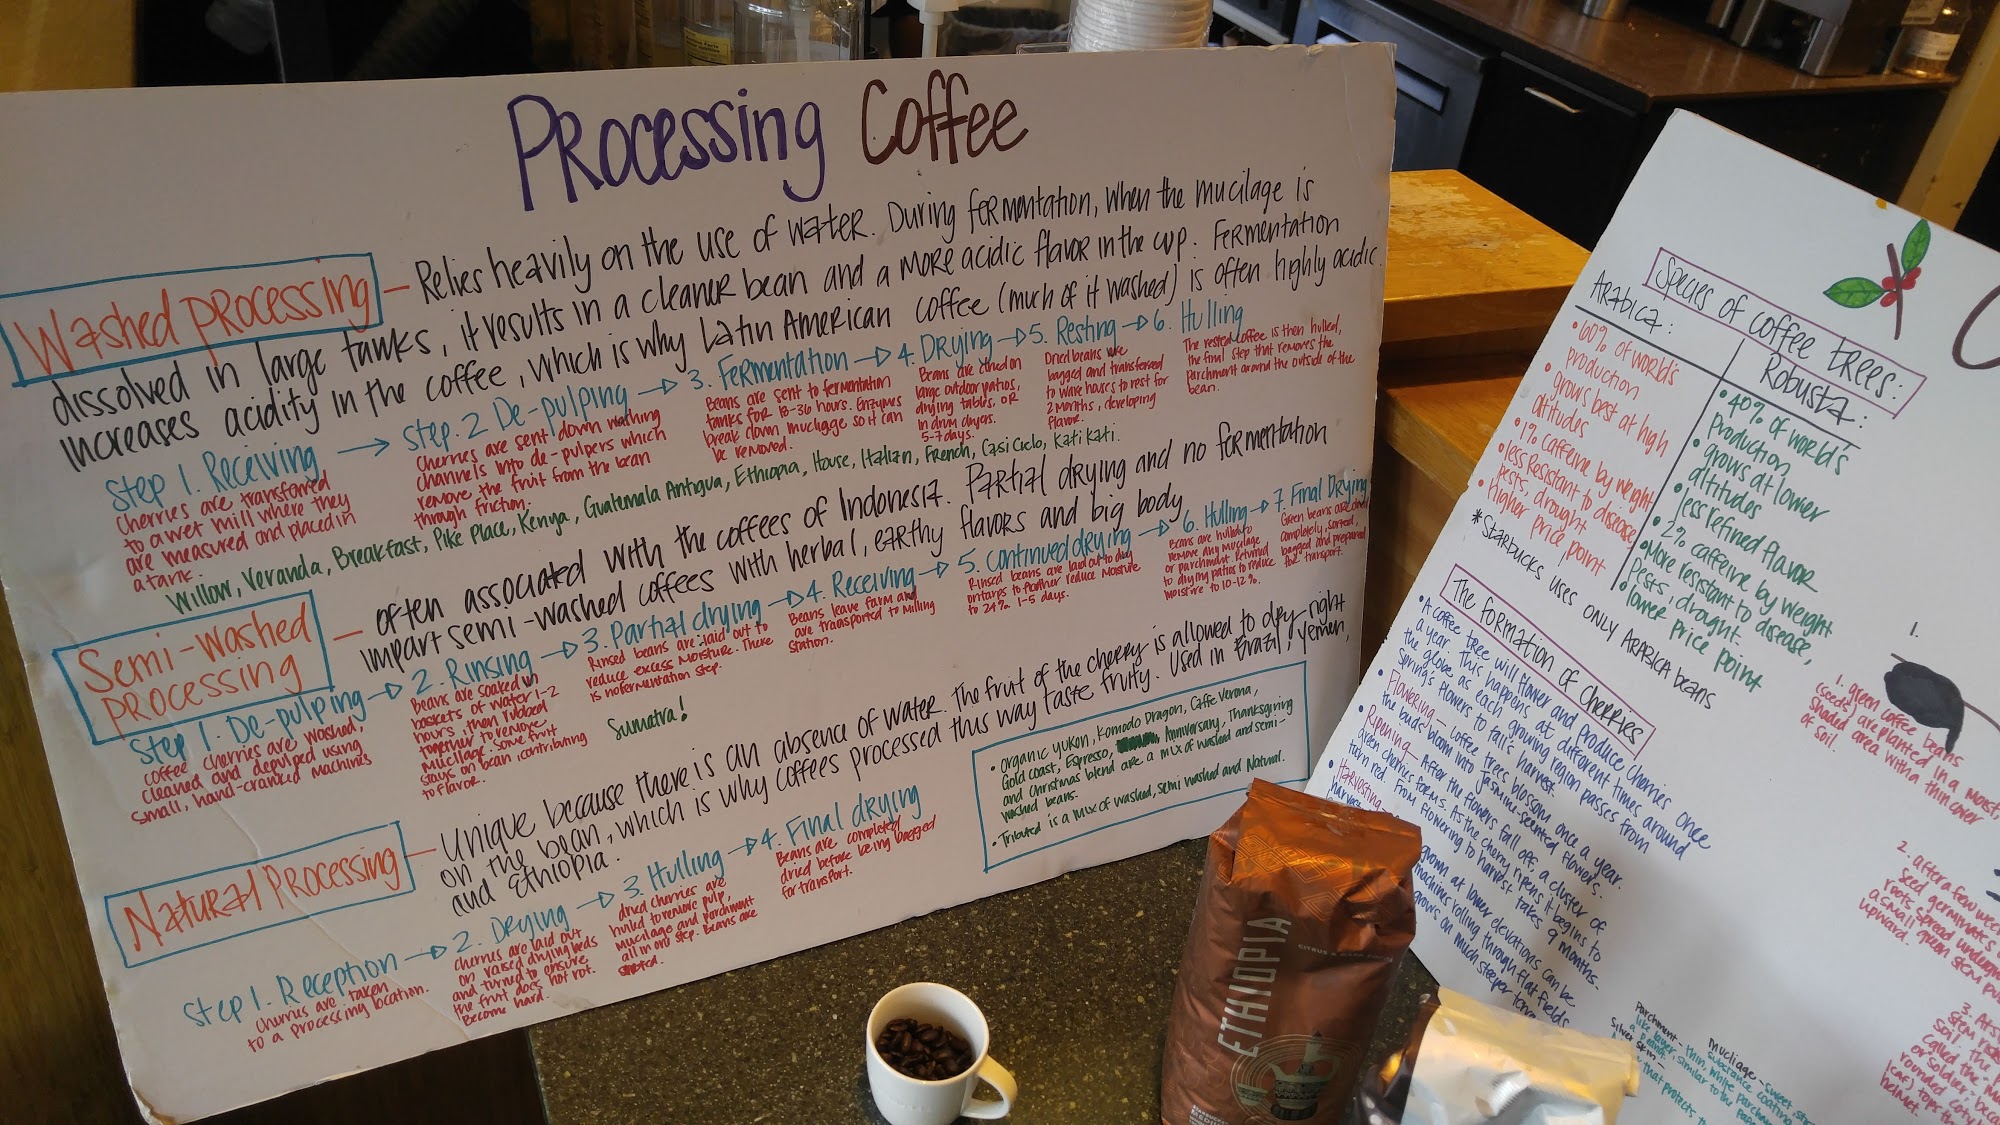 Processing Coffee
Washed processing – Relies heavily on the use of water. During fermentation, when the mucilage is
dissolved in large tanks, it results in a cleaner bean and a more acidic flavor in the cup. Fermentation
increases acidity in the coffee, which is why Latin American coffee (much of it washed) is often highly acidic.
Step 1. Receiving → Step. 2 De-pulping → 3. Fermentation → 4. Drying → 5. Resting → 6. Hulling
cherries are transferred
to a wet mill where they
are measured and placed in
a tank.
Cherries are sent down washing
channels into de-pulpers which
remove the fruit from the bean
through friction.
Beans are sent to fermentation
tanks for 18-36 hours. Enzymes
break down mucilage so it can
be removed.
Beans are dried on
large outdoor patios,
drying tables, or
in drum dryers.
5-7 days.
Dried beans are
bagged and transferred
to warehouses to rest for
2 months, developing
flavor.
The rested coffee is then hulled,
the final step that removes the
parchment around the outside of the
bean.
Willow, Veranda, Breakfast, Pike Place, Kenya, Guatemala Antigua, Ethiopia, House, Italian, French, Casi Cielo, Kati Kati.
Semi-washed
processing – often associated with the coffees of Indonesia. Partial drying and no fermentation
impart semi-washed coffees with herbal, earthy flavors and big body
Step 1. De-pulping → 2. Rinsing → 3. Partial drying → 4. Receiving → 5. Continued drying → 6. Hulling → 7. Final Drying
coffee cherries are washed,
cleaned and depulped using
small, hand-cranked machines
Beans are soaked in
baskets of water 1-2
hours, then rubbed
together to remove
mucilage. Some fruit
stays on bean (contributing
to flavor.
Rinsed beans are laid out to
reduce excess moisture. There
is no fermentation step.
Beans leave farm and
are transported to milling
station.
Rinsed beans are laid out to dry
on tarps to further reduce moisture
to 24% 1-5 days.
Beans are hulled to
remove any mucilage
or parchment. Returned
to drying patios to reduce
moisture to 10-12%.
Green beans are dried
completely, sorted,
bagged and prepared
for transport.
Sumatra!
Natural Processing – Unique because there is an absence of water. The fruit of the cherry is allowed to dry right
on the bean, which is why coffees processed this way taste fruity. Used in Brazil, Yemen,
and Ethiopia.
Step 1. Reception → 2. Drying → 3. Hulling → 4. Final drying
cherries are taken
to a processing location.
cherries are laid out
on raised drying beds
and turned to ensure
the fruit does not rot.
Become hard.
dried cherries are
hulled to remove pulp,
mucilage and parchment
all in one step. Beans are
Beans are completed
dried before being bagged
for transport.
• Organic yukon, Komodo Dragon, Caffe Verona,
Gold coast, Espresso, Anniversary, Thanksgiving
and Christmas blend are a mix of washed and semi-
washed beans.
• Tributed is a mix of washed, semi washed and Natural.
Species of coffee trees:
Arabica:
• 60% of world's
production
• grows best at high
altitudes
• 1% caffeine by weight
• less resistant to disease
pests, drought
• higher price point
Robusta:
• 40% of world's
production
• grows at lower
altitudes
• less refined flavor
• 2% caffeine by weight
• more resistant to disease,
pests, drought.
• lower price point
*Starbucks uses only Arabica beans
The formation of cherries
• A coffee tree will flower and produce cherries once
a year. This happens at different times around
the globe as each growing region passes from
spring's flowers to fall's harvest.
• Flowering – coffee trees blossom once a year.
the buds bloom into jasmine-scented flowers.
• Ripening – After the flowers fall off, a cluster of
green cherries forms. As the cherry ripens, it begins to
turn red. From flowering to harvest takes 9 months.
• Harvesting
grown at lower elevations can be
machines rolling through flat fields
grows on much steeper
1.
1. green coffee beans
(seeds) are planted in a moist,
shaded area with a thin cover
of soil.
2. after a few wee
seed germinates
roots spread underg
a small green stem pu
upward.
3. At st
Parchment – thin, white
Mucilage – sweet,
Silver skin –
ETHIOPIA